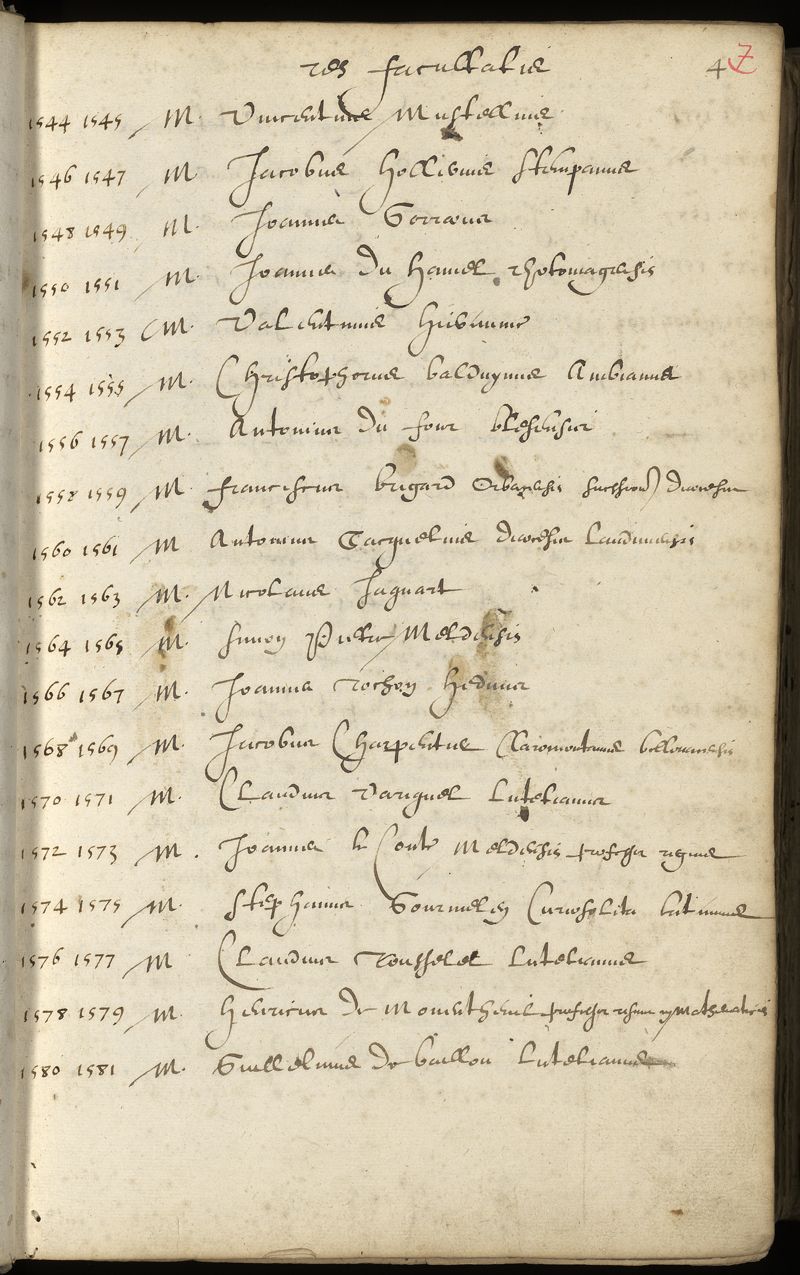 res facultatis 47
1544 1545 M. Vincentius Mustellius
1546 1547 M. Jacobus Hollierius Stempanus
1548 1549 M. Joannes Gorraeus
1550 1551 M. Joannes Du Hamel Rhotomagensis
1552 1553 M. Valentinus
1554 1555 M. Christophorus Balduynus Ambianus
1556 1557 M. Antonius du four Blesensis
1558 1559 M. franciscus Brigard diocesis
1560 1561 M Antonius Tacquetius diocesis Laudunensis
1562 1563 M. Nicolaus Jaquart
1564 1565 M. Simon Pietre Meldensis
1566 1567 M. Joannes Rochon Heduus
1568 1569 M. Jacobus Charpentius Claromontanus bellovacensis
1570 1571 M. Claudius Rousselet Lutetianus
1572 1573 M. Joannes le Conte Meldensis professor regius
1574 1575 M. Stephanus Gourmelen Curiosolita
1576 1577 M Claudius Rousselet Lutetianus
1578 1579 M. Henricus De Monantheuil professor regius in Mathematicis
1580 1581 M. Guillelmus De baillou Lutetianus